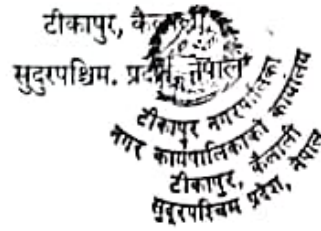 टीकापुर, कैलाली
सुदुरपश्चिम. प्रदेश, नेपाल
टीकापुर नगरपालिका
नगर कार्यपालिकाको कार्यालय
टीकापुर, कैलाली
सुदूरपश्चिम प्रदेश, नेपाल